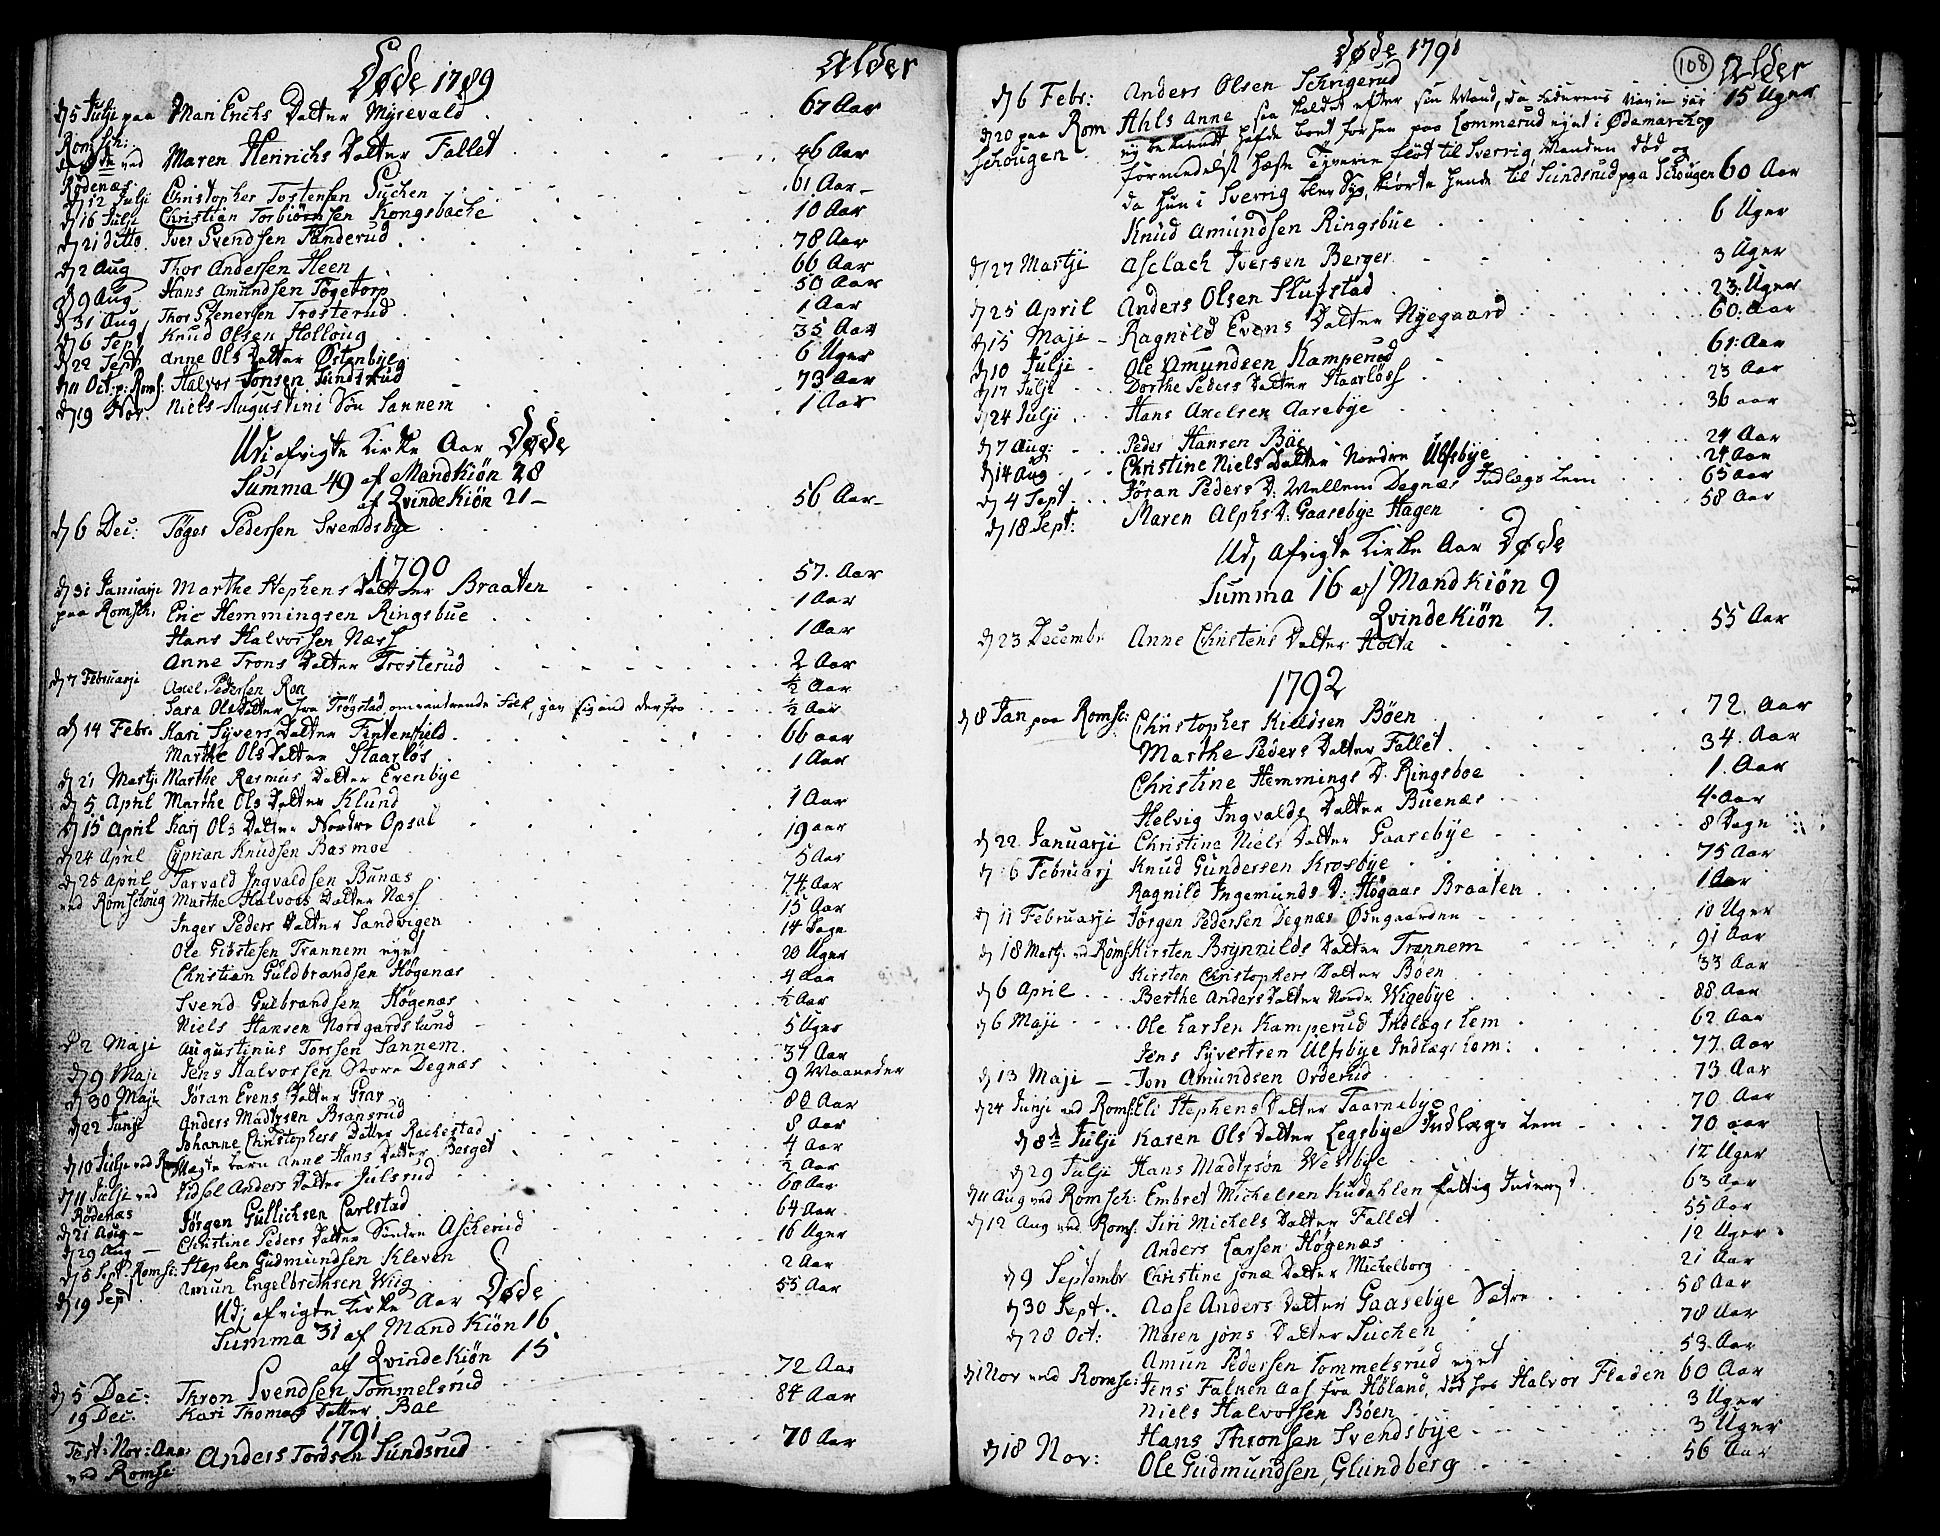 Døde 1789 Alder
d 5 Julji paa Mari Erichs Datter Myrevald 67 Aar
Romsch:
ved Maren Henrichs Datter Fallet 46 Aar
Rødenæs.
d 12 Julji Christopher Tostensen Suchen 61 Aar
d 16 Julji Christian Torbiørnsen Kongsbache 10 Aar
d 21 ditto. Iver Svendsen Tanderud 78 Aar
d 2 Aug Thor Andersen Heen 66 Aar
d 9 Aug Hans Amundsen Togetorp 50 Aar
d 31 Aug Thor Stenersen Trosterud 1 Aar
d 6 Sept Knud Olsen Holloug 35 Aar
d 22 Sept Anne Ols Datter Østenbye 6 Uger
d 11 Oct. p. Roms: Halvor Jonsen Sundsrud 73 Aar
d 19 Nov. Niels Augustini Søn Sannem 1 Aar
Udi afvigte Kirke Aar Døde
Summa 49 af Mandkiøn 28
af Qvindekiøn 21
d 6 Dec: Tøger Pedersen Svendsbye 56 Aar
1790
d 31 Januarji Marthe Stephens Datter Braaten 57. Aar
paa Romsch: Eric Hemmingsen Ringsbue 1 Aar
Hans Halvorsen Næss 1 Aar
Anne Trons Datter Trosterud 2 Aar
d 7 Februarji Axel Pedersen Ron ½ Aar
Sara Ols Datter fra Trøgstad omvandrende Folk, gav sig ind derfra ½ Aar
d 14 Febr: Kari Syvers Datter Tintenfield 66 aar
Marthe Ols Datter Staarløs 1 Aar
d 21 Martji Marthe Rasmus Datter Evenbye
d 5 April Marthe Ols Datter Klund 1 Aar
d 15 April Karj Ols Datter Nordre Opsal 19 aar
d 24 April Cyprian Knudsen Basmoe 5 Aar
d 25 April Tarvald Ingvaldsen Bunæs 74 Aar
ved Romschoug Marthe Halvors Datter Næss 15 Aar
Inger Peders Datter Sandvigen 14 Dage
Ole Gibstesen Trannem 20 Uger
Christian Guldbrandsen Høgenæs 4 Aar
Svend Gulbrandsen Høgenæs ½ Aar
Niels Hansen Nordgardslund 5 Uger
d 2 Maji Augustinus Torssen Sannem 37 Aar
d 9 Maji Jens Halvorsen Store Degnæs 9 Maaneder
d 30 Maji Jøran Evens Datter Grav 80 Aar
d 22 Junji Anders Madtzsen Bransrud 8 Aar
Johanne Christophers Datter Rachestad 4 Aar
d 10 Julji ved Rom Anne Hans Datter Berget ½ Aar
d 11 Julji ved Sidsel Anders Datter Julsrud 60 Aar
Rødenæs Jørgen Gullichsen Carlstad 64 Aar
d 21 Aug Christine Peders Datter Søndre Ascherud 16 Uger
d 29 Aug
d 5 Sept. Romsc: Stephen Gudmundsen Kleven 2 Aar
d 19 Sept Amun Engelbrethsen Wiig 55 Aar
Udj afvigte Kirke Aar Døde
Summa 31 af Mand Kiøn 16
af Qvinde Kiøn 15
d 5 Dec: Thron Svendsen Tommelsrud 72 Aar
19 Dec. Kari Thomas Datter Bae 84 Aar
1791
Fest: Nov: Ann: Anders Tordsen Sundsrud 70 Aar
ved Romsc
Døde 1791 108 Alder
d 6 Febr: Anders Olsen Schrigerud 15 Uger
d 20 paa Rom Ahls Anne saa kaldet efter sin Mand, da Faderens Navn var
schougen ey bekiendt hafde boet for hen paa Lommerud i Ødemarchen
formedelst hæste Tyverie flöt til Sverrig, Manden død og
da hun i Sverrig blev Syg, kiørte hende til Sundsrud paa Schougen 60 Aar
Knud Amundsen Ringsbue 6 Uger
d 27 Martji Aslach Iversen Berger 3 Uger
d 25 April Anders Olsen Slufstad 23. Uger
d 15 Maji Ragnild Evens Datter Nyegaard 60. Aar
d 10 Julji Ole Amundsen Kamperud 61. Aar
d 17 Julji Dorthe Peders Datter Staarløss 23 Aar
d 24 Julji Hans Axelsen Aasebye 36 aar
d 7 Aug: Peder Hansen Bäe 24 Aar
d 14 Aug Christine Niels Datter Nordre Ulfsbye 24 Aar
d 4 Sept. Jöran Peders D. Mellem Degnæs Indlægs Lem 65 aar
d 18 Sept: Maren Alphs D. Gaasebye Hagen 58 Aar
Udj afvigte Kirke Aar Døde
Summa 16 af Mandkiön 9
Qvindekiön 7.
d 23 Decembr Anne Christens Datter Holta 55 Aar
1792
d 8 Jan paa Romsc: Christopher Kieldsen Böen 72. Aar
Marthe Peders Datter Fallet 34. Aar
Christine Hemmings D. Ringsboe 1. Aar
Helvig Ingvalds Datter Buenæs 4. Aar
d 22 Januarji Christine Niels Datter Gaasebye 8 Dage
d 6 Februarj Knud Gundersen Krosbye 75 Aar
Ragnild Ingemunds D. Högaas Braaten 1 Aar
d 11 Februarji Jørgen Pedersen Degnæs Ødegaarden 10 Uger
d 18 Martji ved Roms: Kirsten Brynnilds Datter Trannem 91 Aar
Kirsten Christophers Datter Böen 33 Aar
d 6 April Berthe Anders Datter Nordr Wigebye 88 Aar
d 6 Maji Ole Larsen Kamperud Indlægs Lem 62 Aar
Jens Syvertsen Ulfsbye Indlægs Lem: 77. Aar
d 13 Maji Jon Amundsen Orderud 73. Aar
d 24 Junji ved Roms: Eli Stephens Datter Taarnebye 70 Aar
d 8 Julji Karen Ols Datter Legsbye Indlægs Lem 70 aar
d 29 Julji Hans Madtzsön Westbye 12 Uger
d 11 Aug ved Romsch: Embret Michelsen Kudahlen fattig Inderst 63 Aar
d 12 Aug ved Roms: Siri Michels Datter Fallet 55 Aar
Anders Larsen Högenæs 12 Uger
d 9 Septembr Christine Jonæ Datter Michelborg 21 Aar
d 30 Sept. Aase Anders Datter Gaasebye Sætre 58 Aar
d 28 Oct: Maren Jons Datter Suchen 78 Aar
Amun Pedersen Tommelsrud 53. Aar
d 1 Nov ved Romsc: Jens Falken Aas fra Høland, död hos Halvor Fladen 60 Aar
Niels Halvorsen Böen 3 Uger
Hans Thronsen Svendsbye 3 Uger
d 18 Nov: Ole Gudmundsen, Glundberg 56 Aar